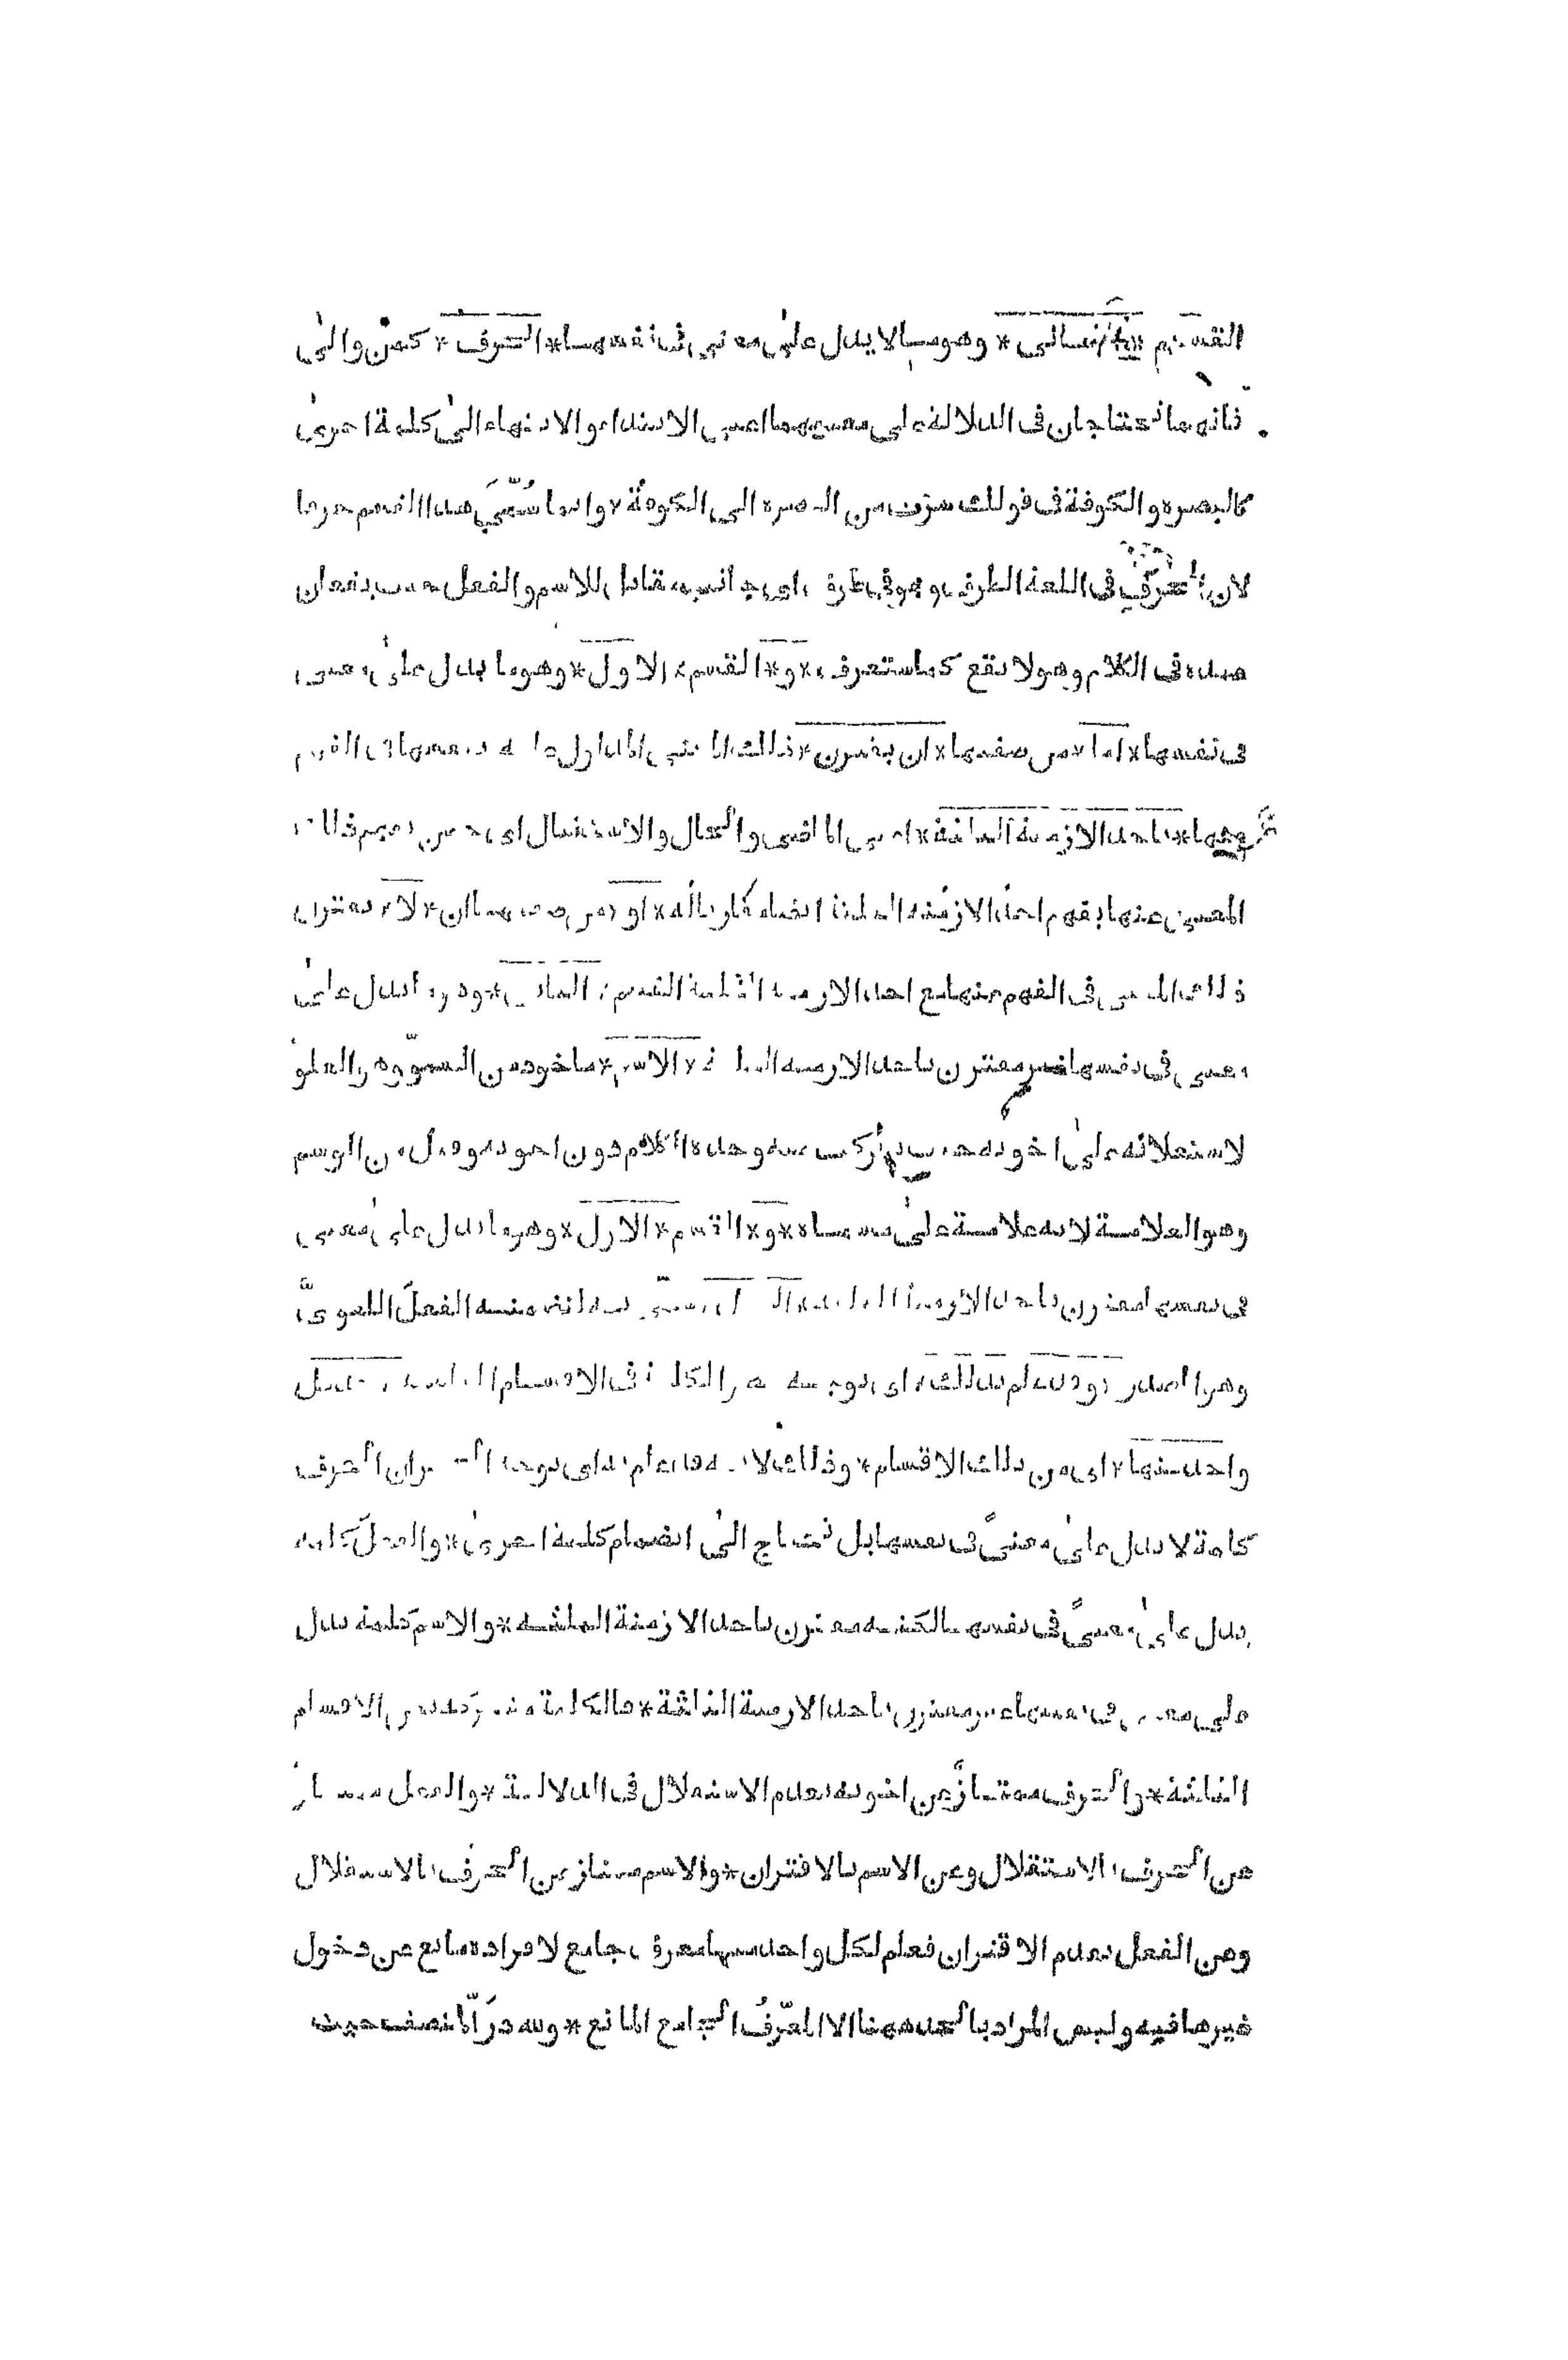 القسم * الثانى * وهو ما لا يدل على معنى فى نفسها * الحرف * كمن والى
فانهما تحتاجان فى الدلالة على معنييهما اعنى الابتداء والانتهاء الى كلمة اخرى
كالبصرة والكوفة فى قولك سرت من البصرة الى الكوفة * وانما سُمِّىَ هذا القسم حرفا
لان الحَرْفَ فى اللغة الطرف وهو فى طرف اى جانب مقابل للاسم والفعل حيث يقعان
عمدة فى الكلام وهو لا يقع كما ستعرف * و * القسم * الاول * وهو ما يدل على معنى
فى نفسها * اما * من صفتها * ان يقترن * ذلك المعنى المدلول عليه بنفسها فى الفهم
عنها * باحد الازمنة الثلثة * اعنى الماضى والحال والاستقبال اى حين يفهم ذلك
المعنى عنها يفهم احد الازمنة الثلثة ايضا مقارنا له * او * من صفتها ان * لا * يقترن
ذلك المعنى فى الفهم عنها مع احد الازمنة الثلثة القسم * الثانى * وهو ما يدل على
معنى فى نفسها غير مقترن باحد الازمنة الثلثة * الاسم * ماخوذ من السموّ وهو العلو
لاستعلائه على اخويه حيث يتركب منه وحده الكلام دون اخويه وقيل من الوسم
وهو العلامة لانه علامة على مسماه * و * القسم * الاول * وهو ما يدل على معنى
فى نفسها مقترن باحد الازمنة الثلثة * الفعل * سمّى به لتضمنه الفعلَ اللغوىَّ
وهو المصدر * وقد علم بذلك * اى بوجه حصر الكلمة فى الاقسام الثلثة * حد كل
واحد منها * اى من تلك الاقسام * وذلك لانه قد علم به اى بوجه الحصر ان الحرف
كلمة لا تدل على معنىً فى نفسها بل تحتاج الى انضمام كلمة اخرى * والفعلَ كلمة
تدل على معنىً فى نفسها لكنه مقترن باحد الازمنة الثلثة * والاسمَ كلمة تدل
على معنى فى نفسها غير مقترن باحد الازمنة الثلاثة * فالكلمة مشتركة بين الاقسام
الثلثة * والحرف ممتازٌ عن اخويه بعدم الاستقلال فى الدلالة * والفعل ممتاز
عن الحرف بالاستقلال وعن الاسم بالاقتران * والاسم ممتاز عن الحرف بالاستقلال
وعن الفعل بعدم الاقتران فعلم لكل واحد منها معرف جامع لافراده مانع عن دخول
غيرها فيه وليس المراد بالحد ههنا الا المعرّفُ الجامع المانع * ولله درّ المنصف حيث